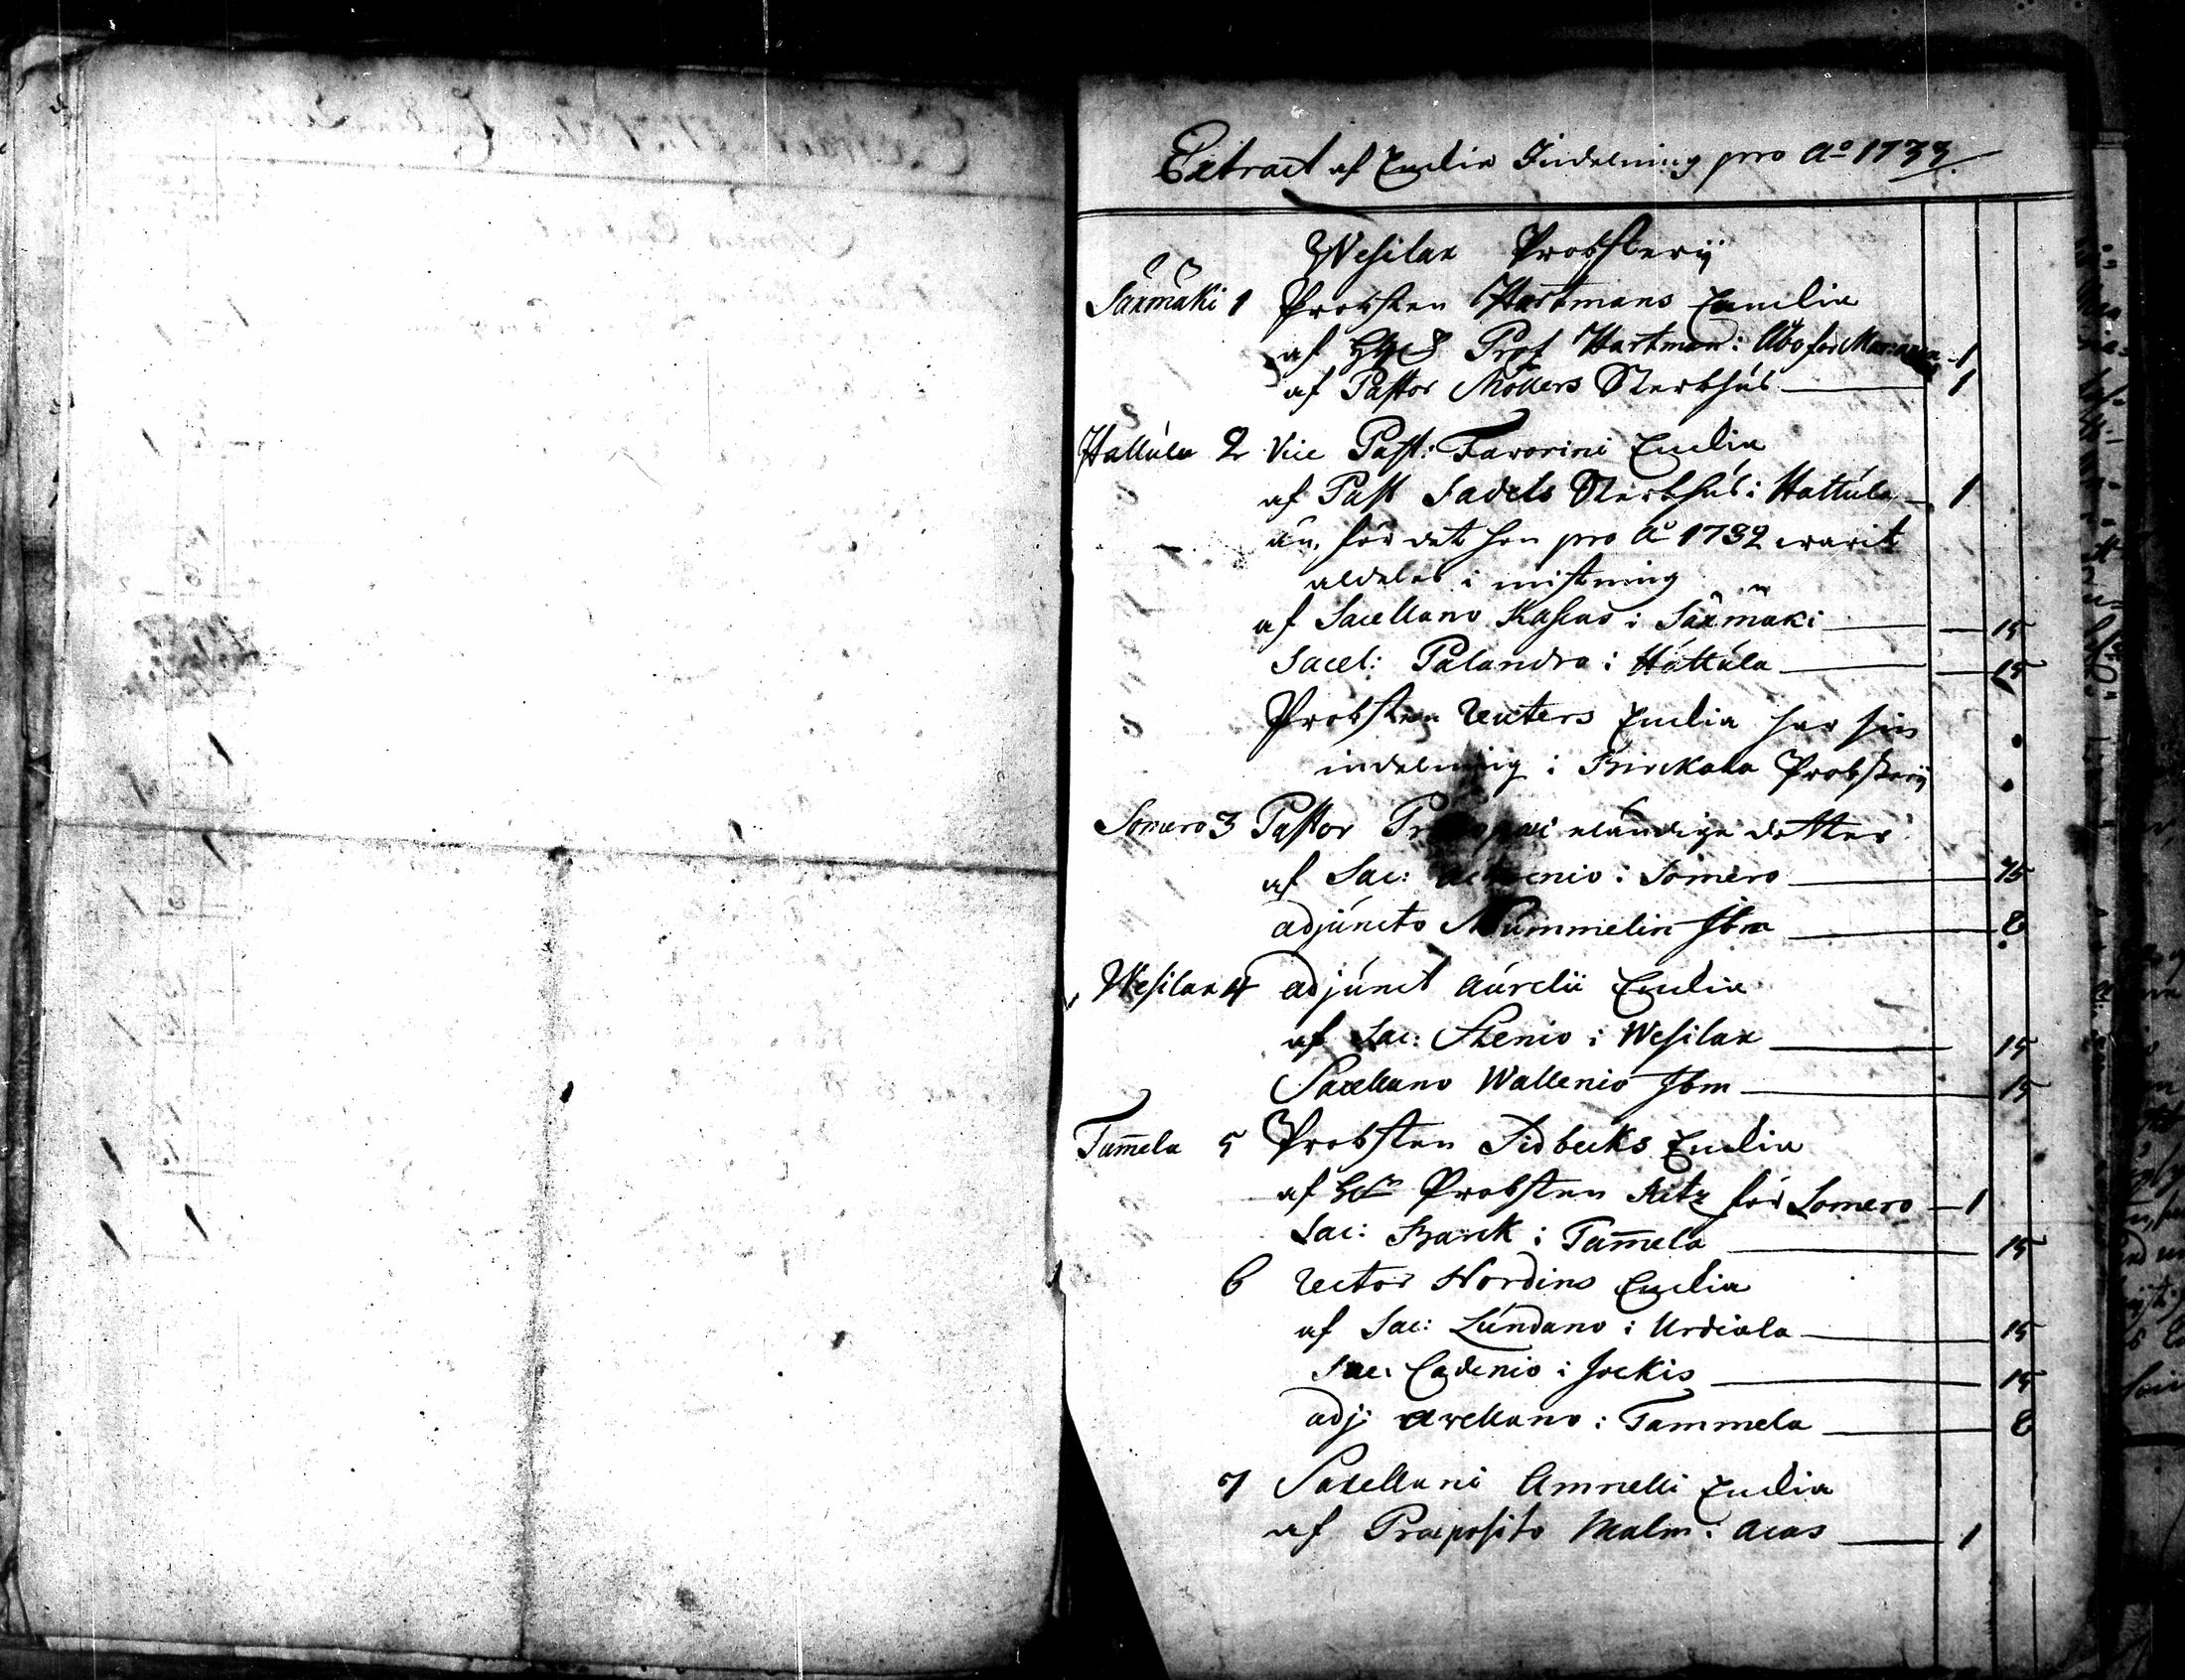 Extract af Enckie Indelning pro Ao 1733
Wesilax Probsterij
Säxmäki 1 Probsten Hartmans Enckia
af Prof Hartman i Åbo för
af Pastor Möllers Sterbhus 1
Hattula 2 Vice Past: Favorini Enckia
af Past Sadels Sterbhus i Hattula 1
än, för det hon pro Ao 1732 warit
aldeles i mistning
af Sacellano i Säxmäki 15
Sacel: Palandro i Hattula 15
Probsten Reuters Enckia har sin
indelning i Birckala Probsterij
Somero 3 Pastor eländige dotter
af Sac: i Somero 15
adjuncto Nummelin Ibm 8
Wesilax 4 adjunct Aurelii Enckia
af Sac: i Wesilax 15
Sacellano Wallenio Ibm 15
Tam̄ela 5 Probsten Enckia
af Probsten för Somero 1
Sac: i Tam̄ela 15
6 Rector Nordins Enckia
af Sac: Lundano i Urdiala 15
Sac: i Jockis 15
adj: Avellano i Tammela 8
7 Sacellani Amnelli Enckia
af Præposito Malm i Acas 1